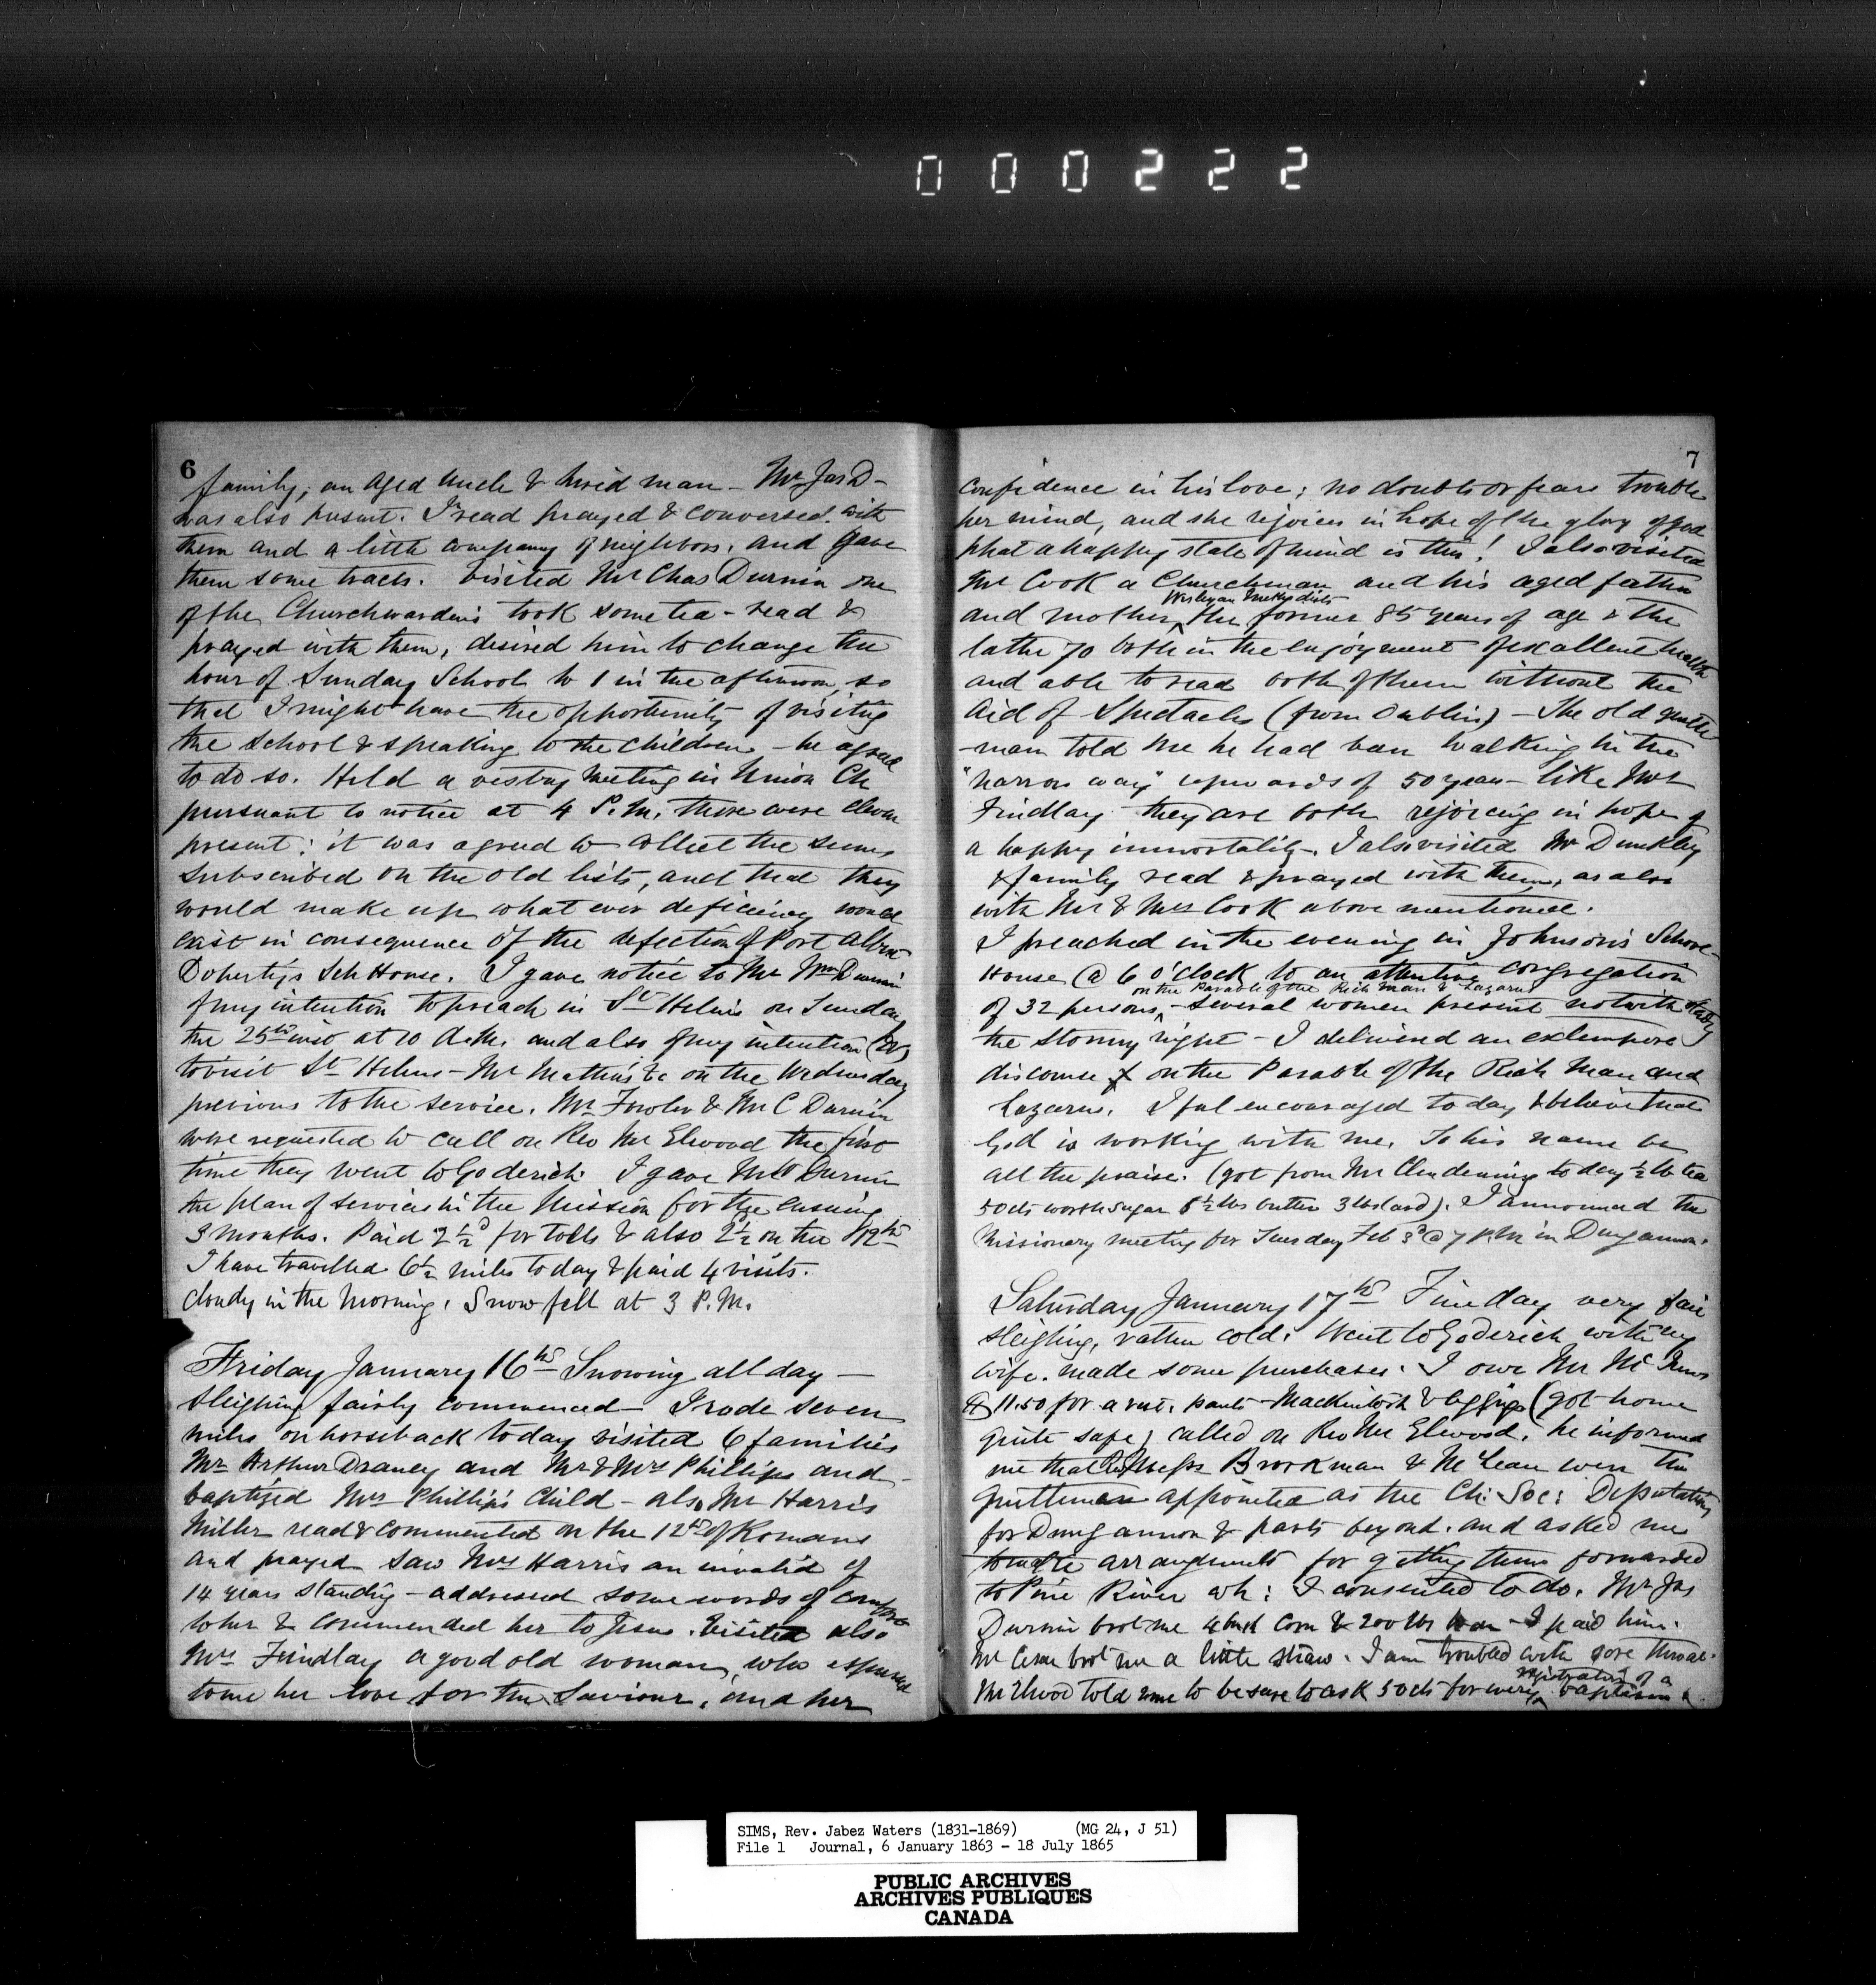 000222
6
family, an aged uncle & hired man - Mr Jas D-
was also present. I read prayed & conversed with
them and a little company of neighbors, and gave
them some tracts. Visited Mr Chas Durnin one
of the Churchwardens took some tea - read &
prayed with them, desired him to change the
hour of Sunday School to 1 in the afternoon, so
that I might have the opportunity of visiting
the school & speaking to the children - he agreed
to do so. Held a vestry meeting in Union Ch
pursuant to notice at 4 P.M. there were eleven
present: it was agreed to collect the sums
subscribed on the old lists, and that they
would make up what ever deficiency would
exist in consequence of the defection of Port Albert
Doherty's Sch House. I gave notice to Mr Wm Durnin
of my intention to preach in St Helens on Sunday
the 25th inst at 10 A.M. and also of my intention (DV)
to visit St Helens - Mr Mathers &c on the Wednesday
previous to the service. Mr Fowler & Mr C Durnin
were requested to call on Rev Mr Elwood the first
time they went to Goderich. I gave Mr Durnin
the plan of services in the Mission for the ensuing
3 months. Paid 2½d for tolls & also 2½ on the 12th
I have travelled 6½ miles today & paid 4 visits.
Cloudy in the Morning. Snow fell at 3 P.M.
Friday January 16th Snowing all day —
sleighing fairly commenced - I rode seven
miles on horseback today visited 6 families
Mr Arthur Draney and Mr & Mrs Phillips and
baptized Mrs Phillips' Child - also Mr Harris
Miller read & commented on the 12th of Romans
and prayed saw Mrs Harris an invalid of
14 years standing - addressed some words of comfort
to her & commended her to Jesus. Visited also
Mrs Findlay a good old woman, who expressed
to me her love for the Saviour, and her
7
confidence in his love; no doubts or fears trouble
her mind, and she rejoices in hope of the glory of God
what a happy state of mind is this! I also visited
Mr Cook a Churchman and his aged father
Wesleyan Methodists
and mother, the former 85 years of age & the
latter 70 both in the enjoyment of excellent health
and able to read both of them without the
aid of Spectacles (from Dublin) - The old gentle-
-man told me he had been walking in the
"narrow way" upwards of 50 years - like Mrs
Findlay they are both rejoicing in hope of
a happy immortality. I also visited Mr Dunkley
& family read & prayed with them, as also
with Mr & Mrs Cook above mentioned.
I preached in the evening in Johnson's School
House @ 6 o'clock to an attentive congregation
on the Parable of the Rich Man & Lazarus
of 32 persons, several women present notwithstandg
the stormy night - I delivered an extempore
discourse on the Parable of the Rich Man and
Lazarus. I feel encouraged today & believe that
God is working with me. To his name be
all the praise. (got from Mr Clendening today ½ lb tea
50cts worth sugar 8½ lbs butter 3 lbs lard). I announced the
Missionary meeting for Tuesday Feb 3d @ 7 P.M in Dungannon.
Saturday January 17th Fine day very fair
sleighing, rather cold. Went to Goderich with my
wife. made some purchases. I owe Mr Mc
$11.50 for a vest, pants - Mackintosh & leggings (got home
quite safe) called on Rev Mr Elwood. he informed
me that Revd Messrs Brookman & McLean were the
gentlemen appointed as the Ch: Soc: Deputation
for Dungannon & parts beyond. and asked me
to make arrangements for getting them forwarded
to Pine River wh: I consented to do. Mr Jas
Durnin brot me 4 bush Corn & 200 lbs bran - I paid him.
Mr brot me a little straw. I am troubled with sore throat.
registration of a
Mr Elwood told me to be sure to ask 50cts for every baptism.
SIMS, Rev. Jabez Waters (1831-1869) (MG 24, J 51)
File 1 Journal, 6 January 1863 - 18 July 1865
PUBLIC ARCHIVES
ARCHIVES PUBLIQUES
CANADA